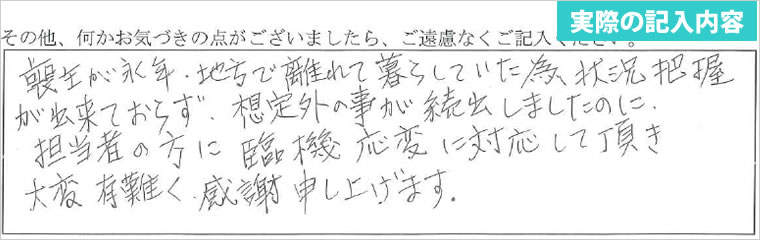 実際の記入内容
その他、何かお気づきの点がございましたら、ご遠慮なくご記入ください。
喪主が永年、地方で離れて暮らしていた為、状況把握
が出来ておらず、想定外の事が続出しましたのに、
担当者の方に臨機応変に対応して頂き
大変有難く感謝申し上げます。